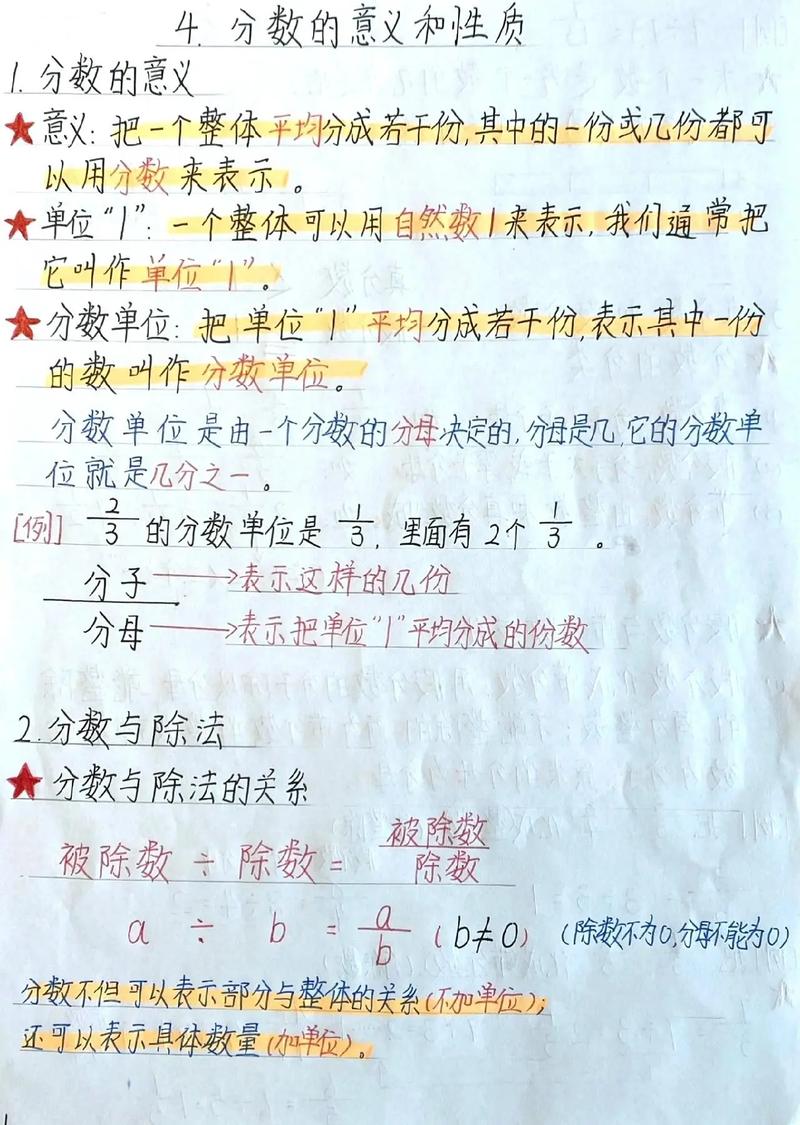 4. 分数的意义和性质
1. 分数的意义
★ 意义: 把一个整体平均分成若干份,其中的一份或几份都可
以用分数来表示。
★ 单位“1”: 一个整体可以用自然数1来表示,我们通常把
它叫作单位“1”。
★ 分数单位: 把单位“1”平均分成若干份,表示其中一份
的数叫作分数单位。
分数单位是由一个分数的分母决定的,分母是几,它的分数单
位就是几分之一。
[例] 2/3 的分数单位是 1/3, 里面有2个 1/3 。
分子→表示这样的几份
分母→表示把单位“1”平均分成的份数
2.分数与除法
★ 分数与除法的关系
被除数 ÷ 除数 = 被除数/除数
a ÷ b = a/b (b≠0) (除数不为0,分母不能为0)
分数不但可以表示部分与整体的关系(不加单位);
还可以表示具体数量(加单位)。